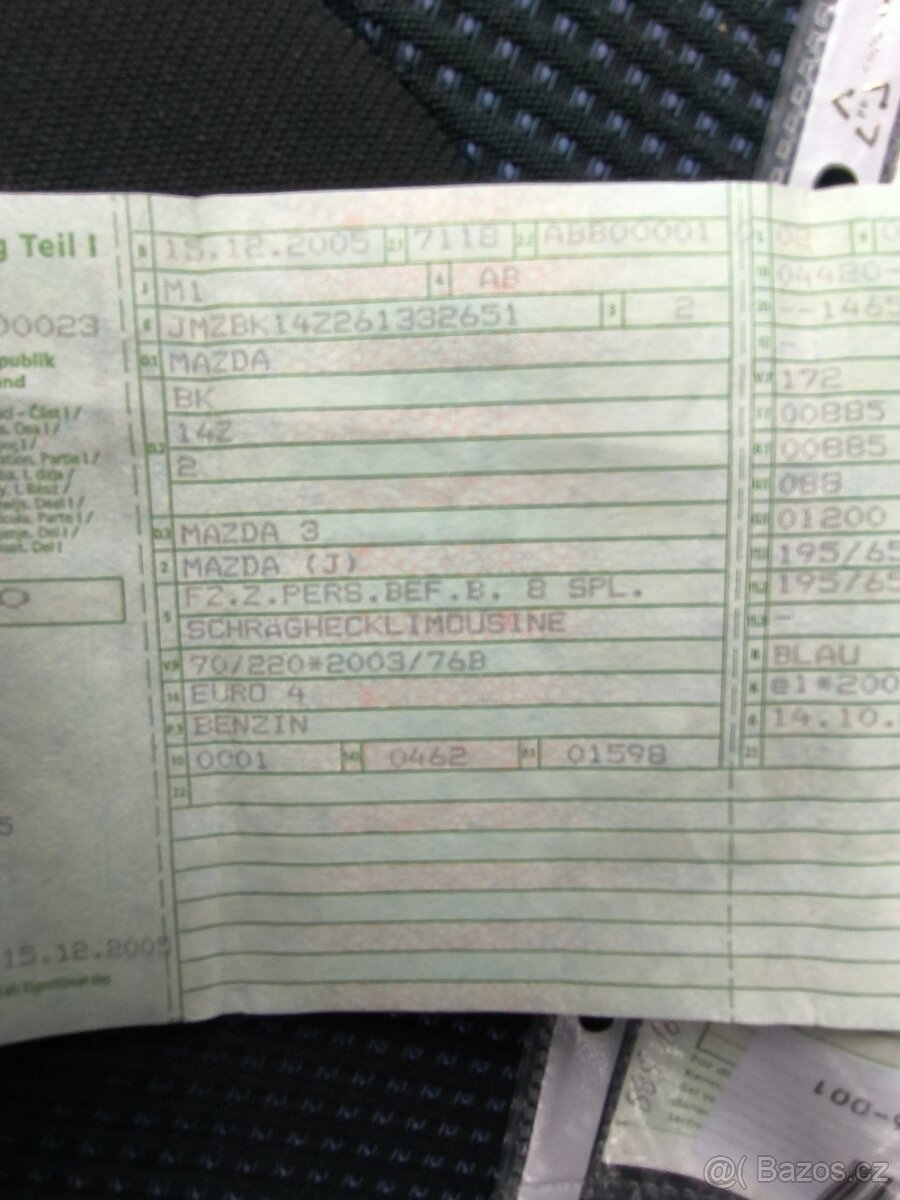 g Teil I
00023
publik
15.12.2005 2.1 7118 2.2 ABB00001
M1 4 AB
JMZBK14Z261332651 3 2
D.1 MAZDA
BK
14Z
2
D.3 MAZDA 3
2 MAZDA (J)
5 FZ.Z.PERS.BEF.B. 8 SPL.
SCHRÄGHECKLIMOUSINE
V.9 70/220*2003/76B
14 EURO 4
P.3 BENZIN
10 0001 14.1 0462 P.1 01598
22
02
04480-
--1465
-
172
00885
00885
088
01200
195/65
195/65
-
BLAU
e1*200
14.10.
21
5
15.12.2005
-001
@( Bazos.cz